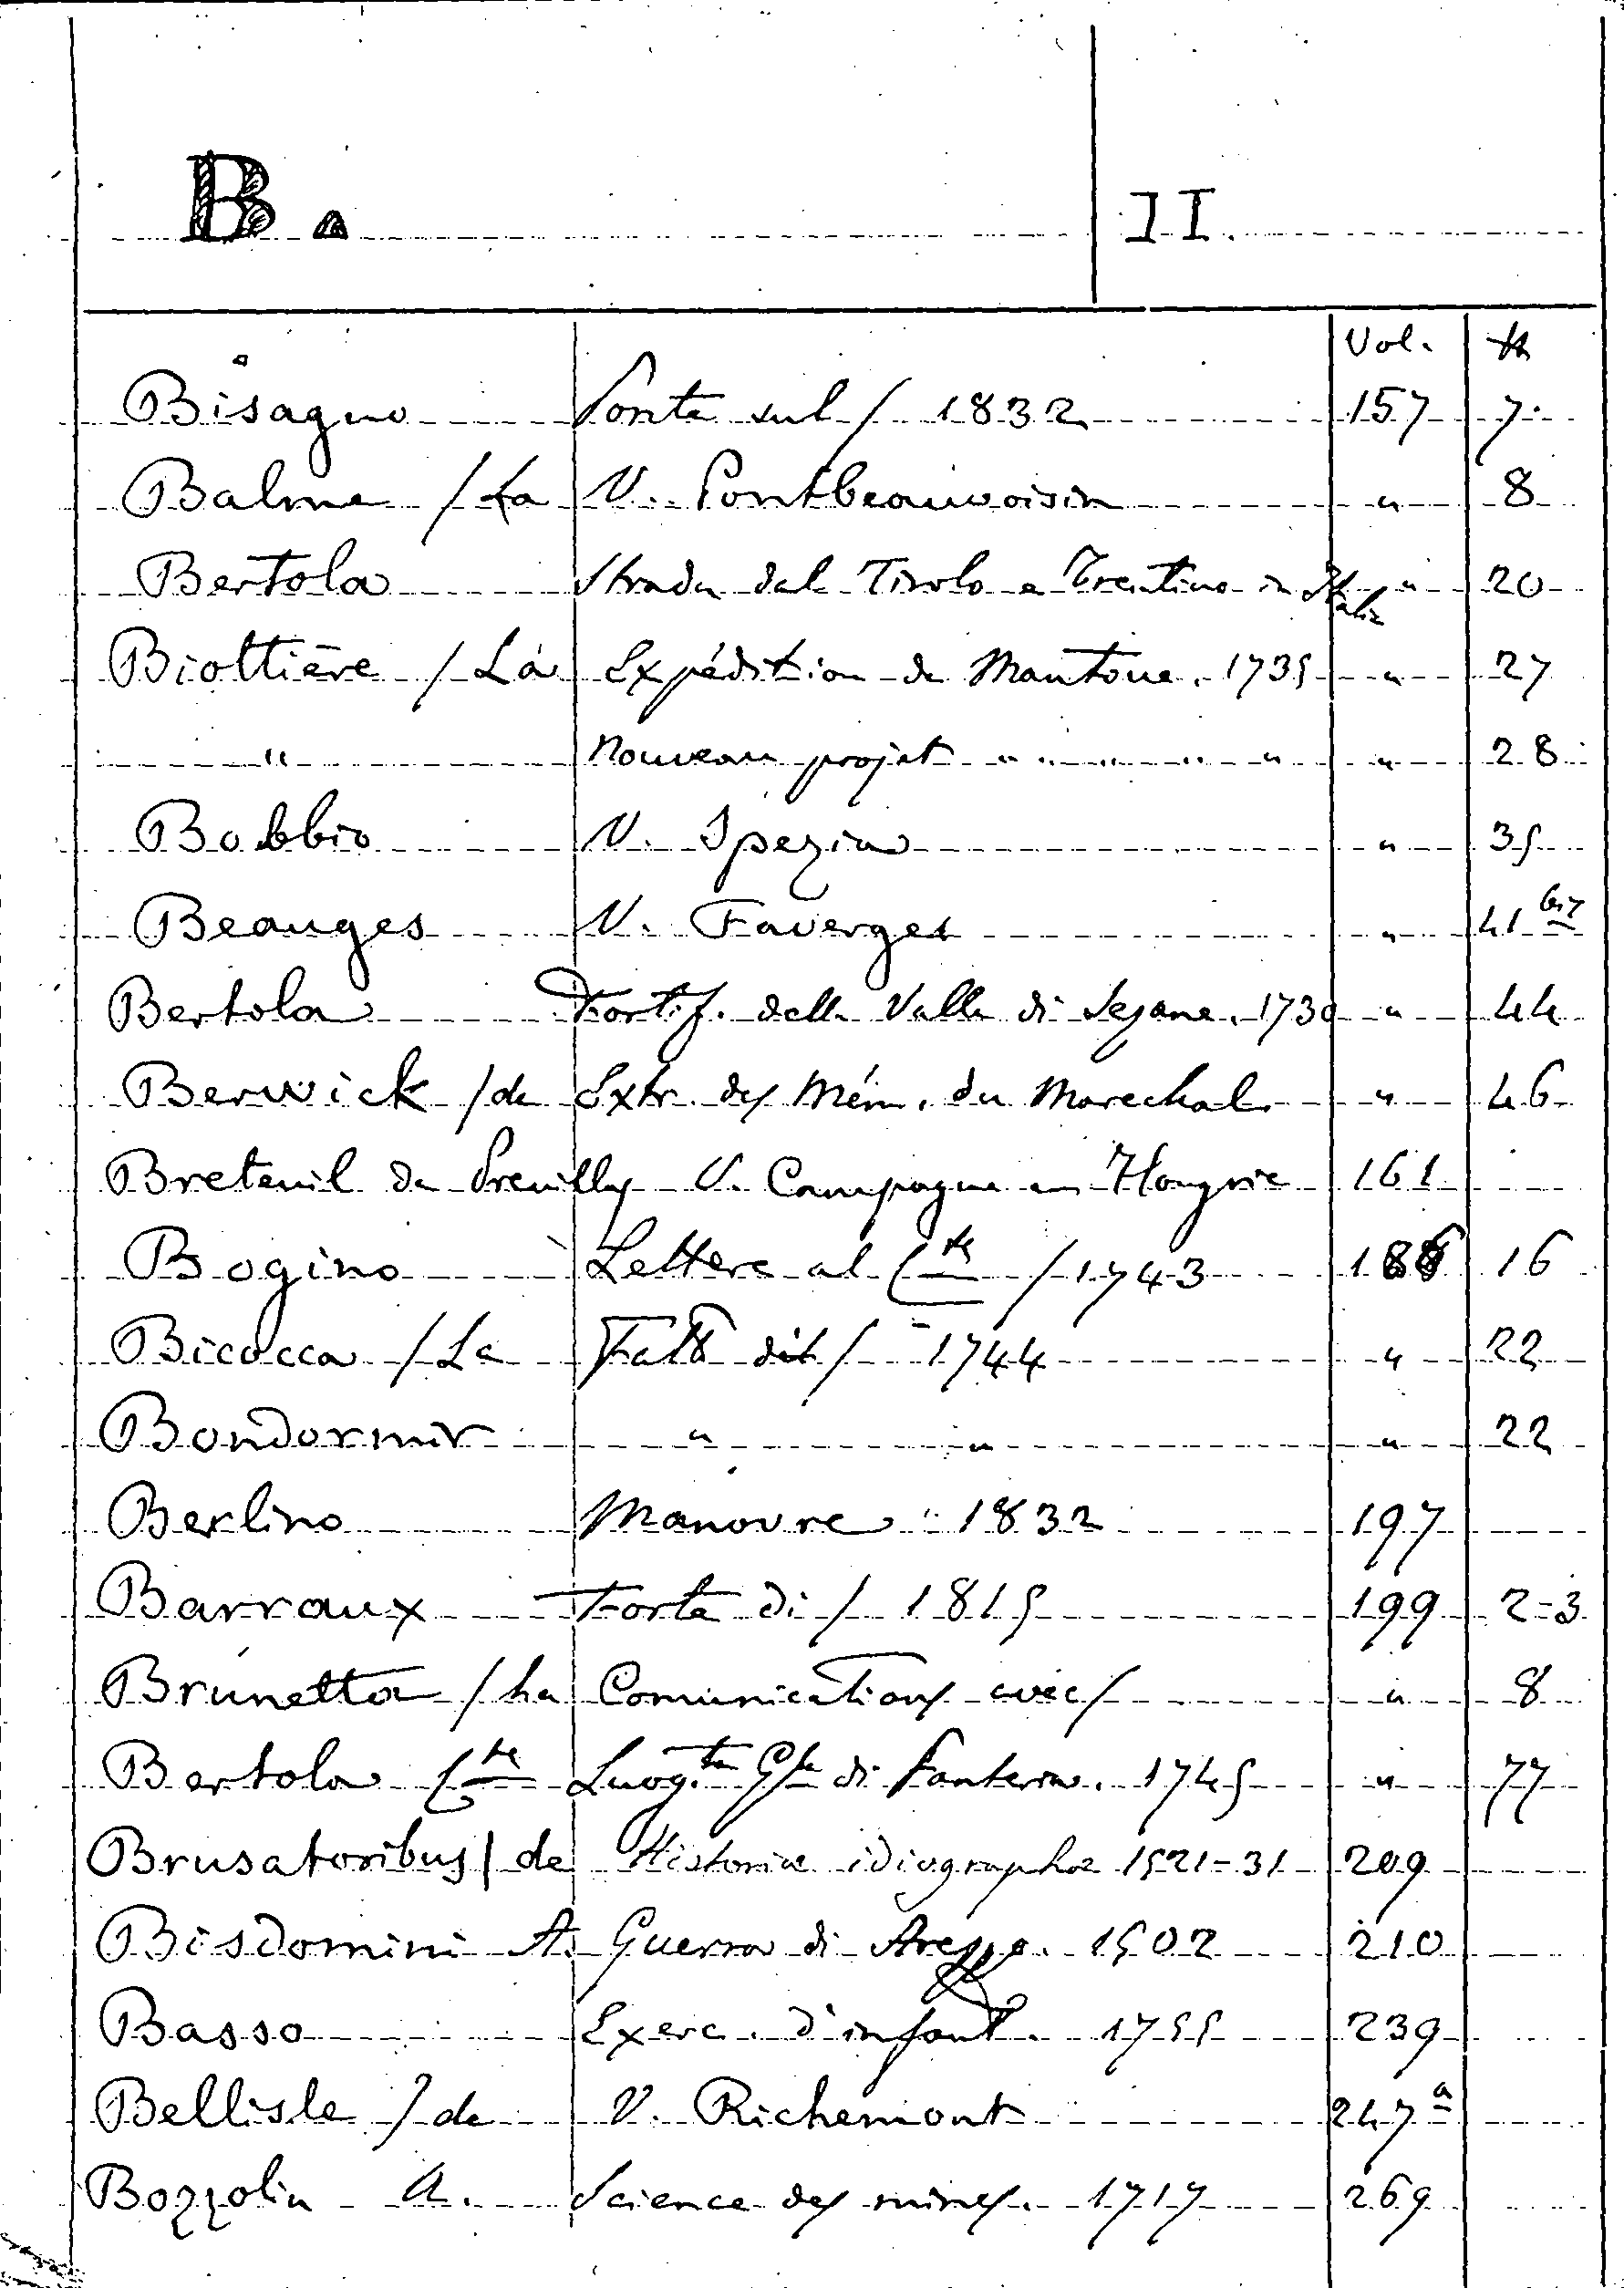 B. II.
Vol. N
Bisagno Ponte sul / 1832 157 7.
Balme / La V. Pontbeauvoisin " 8
Bertola Strada dal Tirolo e Trentino in Italia " 20
Biottière / La Expédition de Mantoue. 1735 " 27
" Nouveau projet " " " " " " 28
Bobbio V. Spezia " 35
Beauges V. Faverges " 41 bis
Bertola Fortif. della Valle di Sezane. 1730 " 44
Berwick / de Extr. des Mém. du Marechal. " 46
Breteuil de Preuilly V. Campagne en Hongrie 161
Bogino Lettere al Cte / 1743 186 16
Bicocca / La Fatto di / 1744 " 22
Bondormir " " " 22
Berlino Manovre 1832 197
Barraux Forte di / 1815 199 2-3
Brunetta / La Comunications avec / " 8
Bertola Cte Luogte Gle di Fanteria. 1745 " 77
Brusatoribus / de Historia idiographa 1521-31 209
Bisdomini A. Guerra di Arezzo. 1502 210
Basso Exerc. d'infant. 1755 239
Bellisle / de V. Richemont 247 a
Bozzolin A. Science des mines. 1717 269